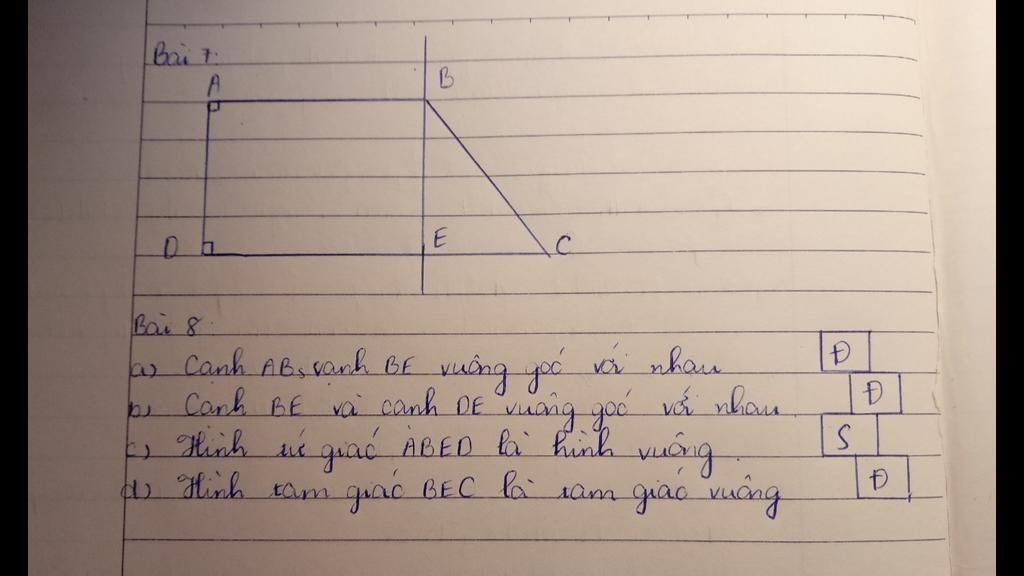 Bài 7:
A B
D E C
Bài 8:
a) Cạnh AB, cạnh BE vuông góc với nhau Đ
b) Cạnh BE và cạnh DE vuông góc với nhau. Đ
c) Hình tứ giác ABED là hình vuông. S
d) Hình tam giác BEC là tam giác vuông Đ